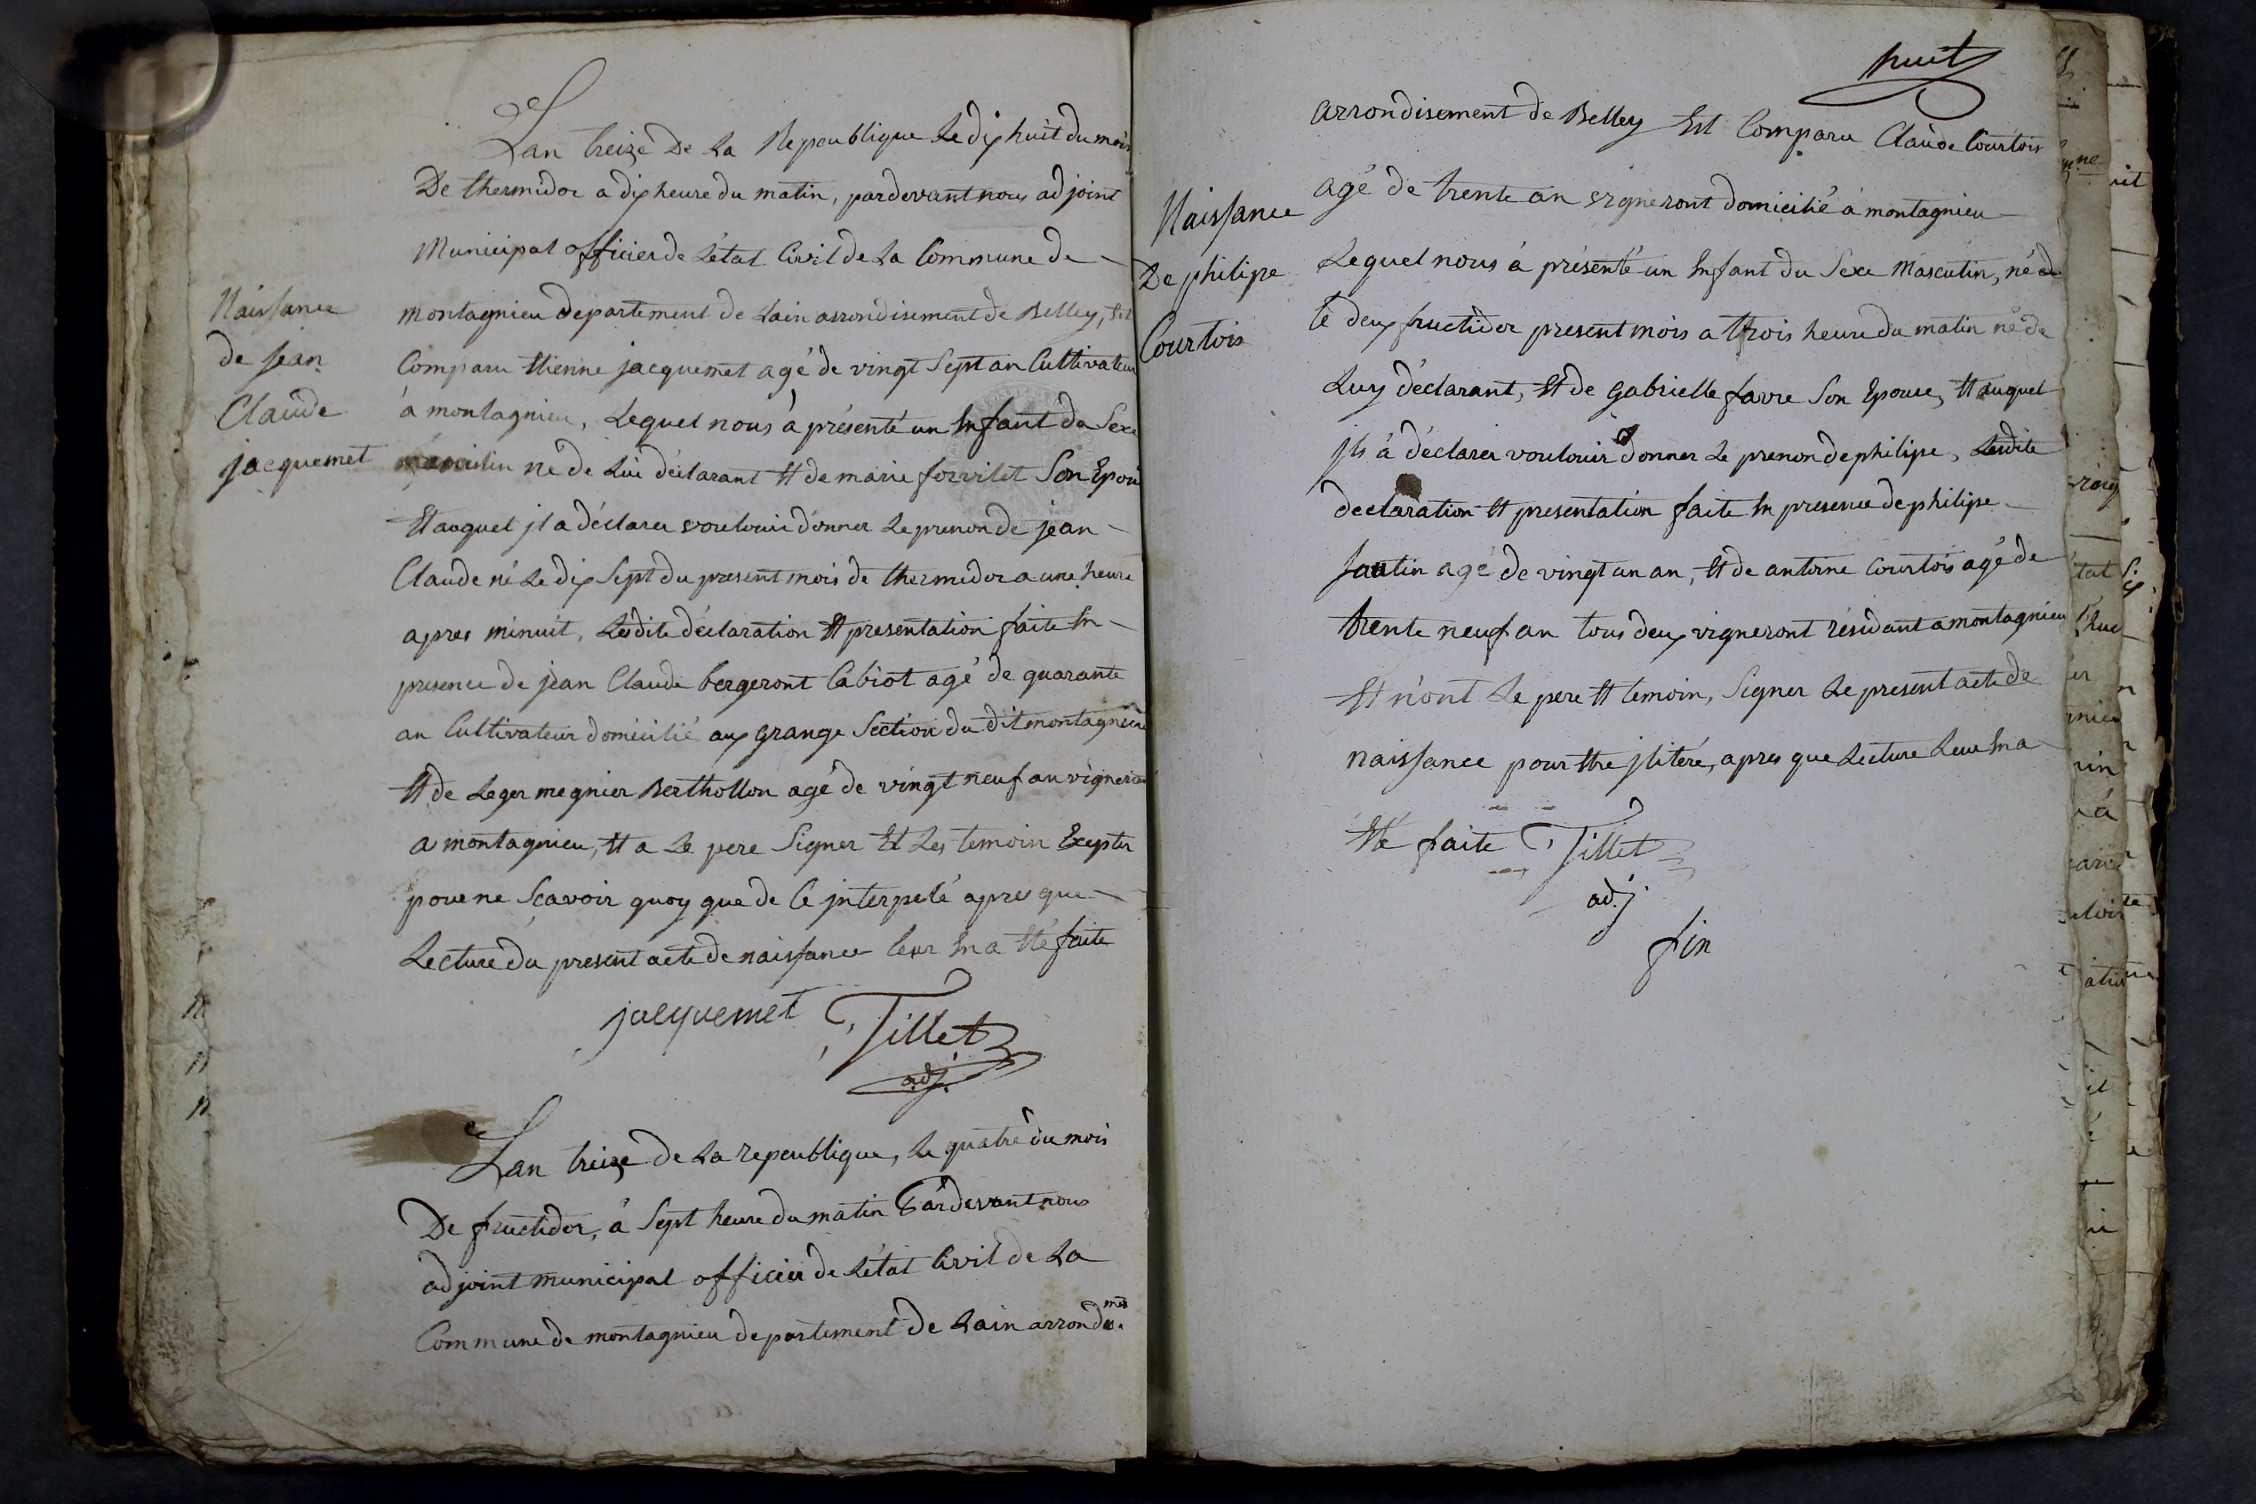 Naissance
de jean
Claude
jacquemet
Lan treize De La Repeublique Le dix huit du mois
De thermidor a dix heure du matin, pardevant nous adjoint
Municipal officier de Létat Civil de La Commune de
montagnieu departement de Lain arrondisement de Belley, Est
Comparu Etienne jacquemet agé de vingt Sept an Cultivateur
à montagnieu, Lequel nous à présenté un Enfant du Sexe
masculin né de Lui déclarant Et de marie forvilet Son Epou
Et auquel jl a déclarer voulouir donner Le prenon de jean
Claude né Le dix Sept du present mois de thermidor a une heure
apres minuit, Lesdite déclaration Et presentation faite En
presence de jean Claude bergeront Cabiot agé de quarante
an Cultivateur domicilié aux grange Section du dit montagnieu
Et de Leger megnier Berthollon agé de vingt neuf an vigneron
a montagnieu, Et a Le pere Signer Et Les temoin Exepter
pour ne Scavoir quoy que de Ce jnterpelé apres que
Lecture du present acte de naissance leur En a Eté faite
jacquemet Tillet
adj.
Lan treize de La repeublique, Le quatre du mois
De fructidor, à Sept heure du matin Pardevant nous
adjoint municipal officier de Létat Civil de La
Commune de montagnieu departement de Lain arrond
huit
Naissance
De philipe
Courtois
arrondisement de Belley Est Comparu Claude Courtois
agé de trente an vigneront domicilié à montagnieu
Lequel nous à présenté un Enfant du Sexe Masculin, né
le deux fructidor present mois a trois heure du matin né de
Luy déclarant, Et de gabrielle favre Son Epouse, Et auquel
jls à déclarer voulouir donner Le prenon de philipe, Lesdite
declaration Et presentation faite En presence de philipe
agé de vingt un an, Et de antoine Courtois agé de
trente neuf an tous deux vigneront résidant a montagnieu
Et n'ont Le pere Et temoin, Signer Le present acte de
naissance pour Etre jlitéré, apres que Lecture Leur En a
Eté faite Tillet
adj.
fin